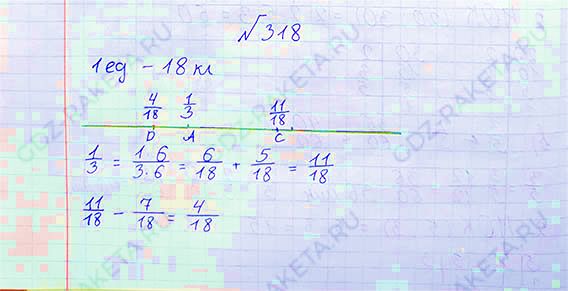 №318
1 ед - 18 кл
4/18 1/3 11/18
D A C
1/3 = 1·6/3·6 = 6/18 + 5/18 = 11/18
11/18 - 7/18 = 4/18
GDZ-RAKETA.RU
GDZ-RAKETA.RU
GDZ-RAKETA.RU
GDZ-RAKETA.RU